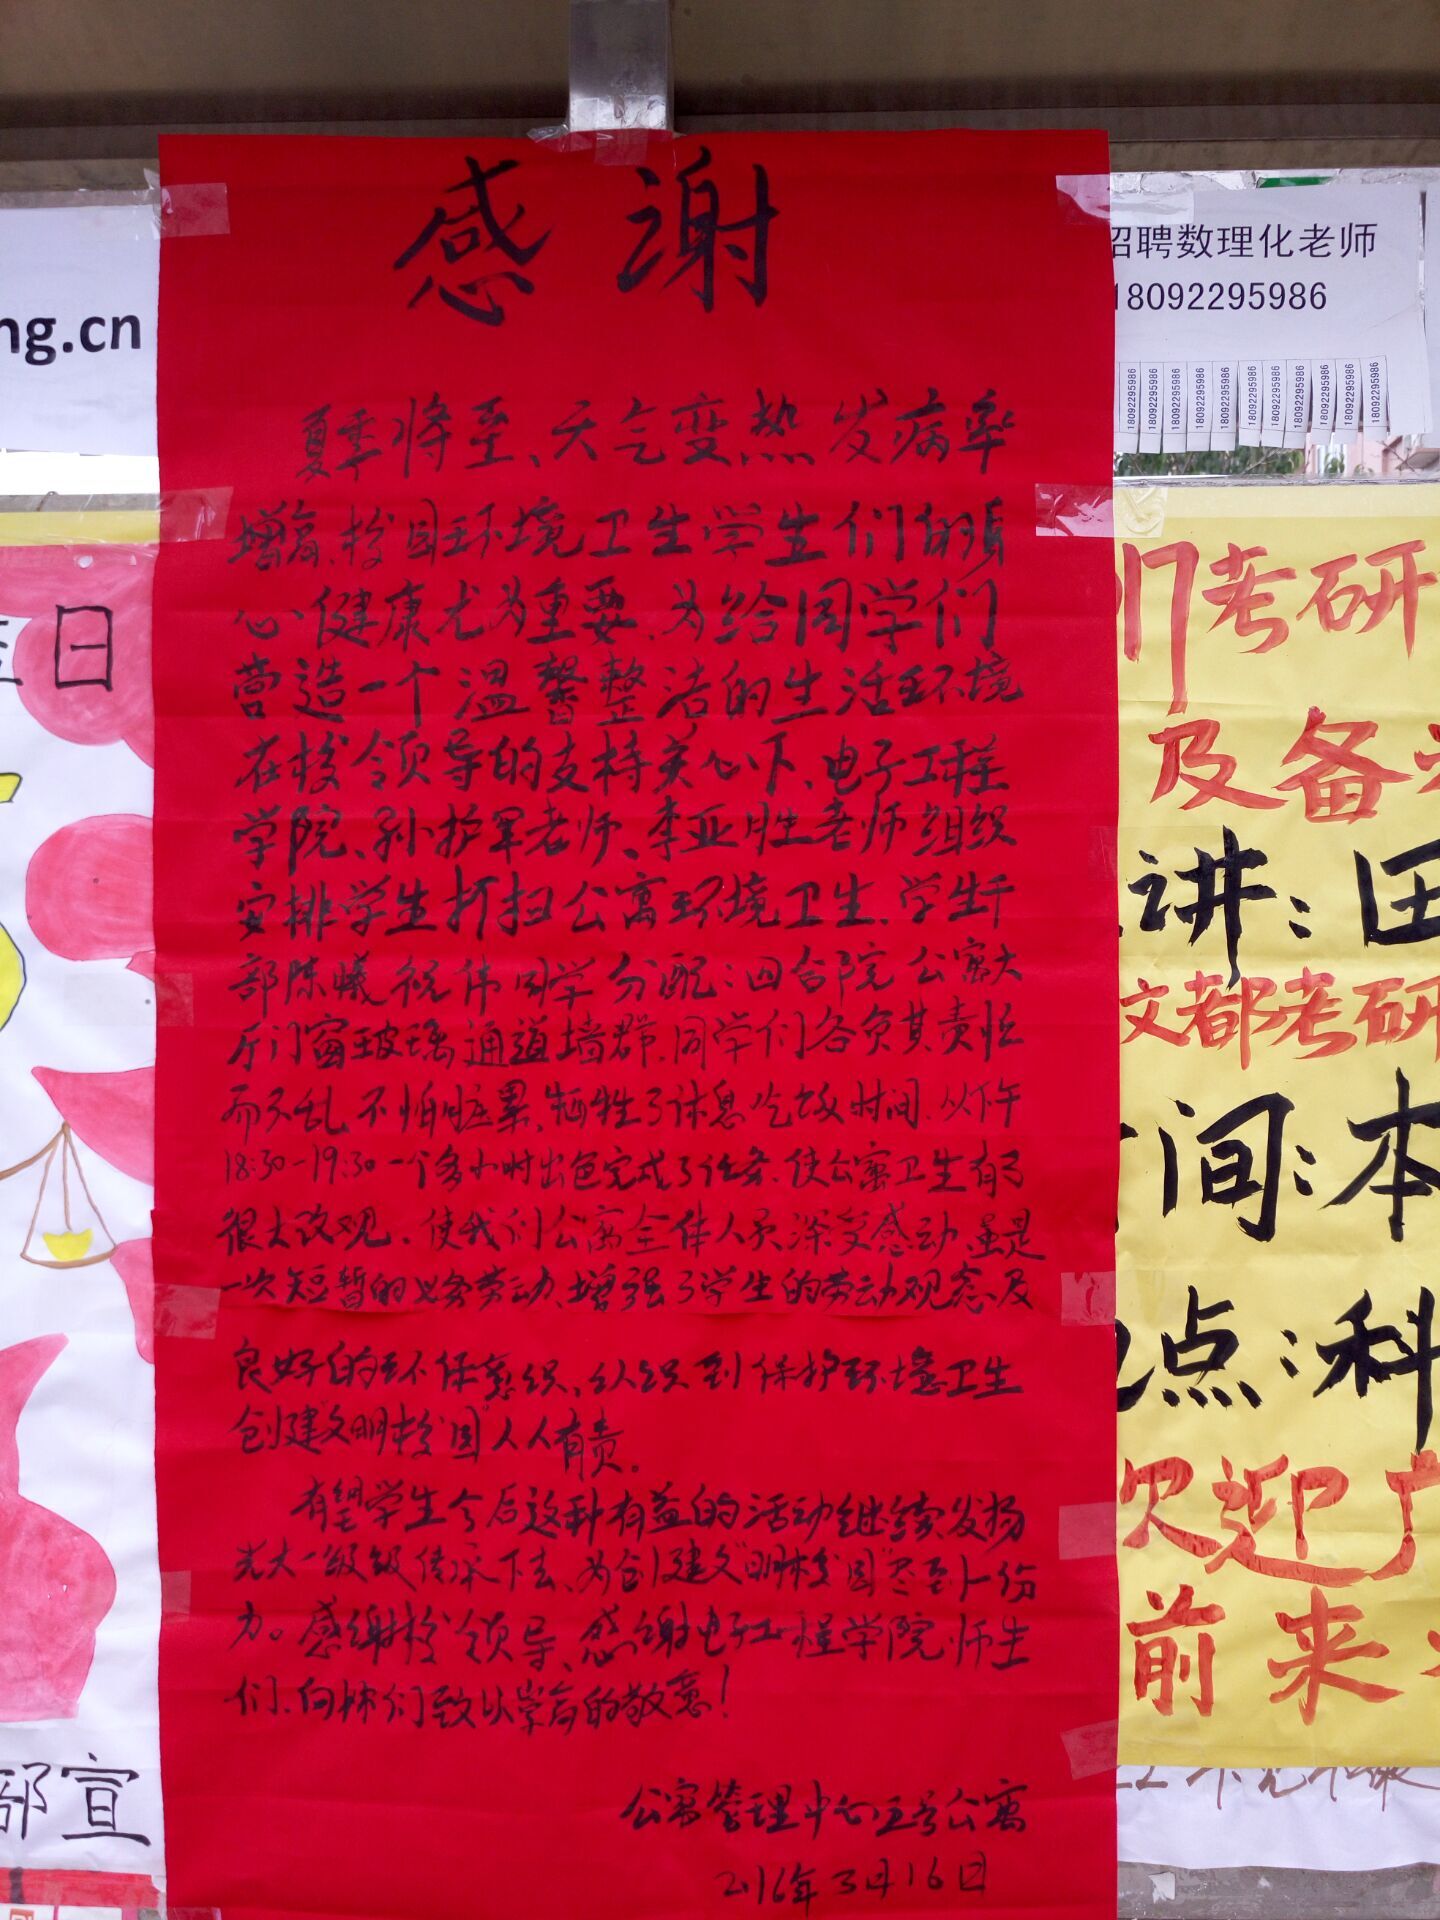 感谢
夏季将至、天气变热、发病率
增高、校园环境卫生学生们的身
心健康尤为重要、为给同学们
营造一个温馨整洁的生活环境
在校领导的支持关心下、电子工程
学院、孙护军老师、李亚胜老师组织
安排学生打扫公寓环境卫生、学生干
部陈曦祝伟同学分配：四合院公寓大
厅门窗玻璃通道墙群、同学们各负其责忙
而不乱不怕脏累、牺牲了休息吃饭时间、从下午
18:30-19:30一个多小时出色完成了任务、使公寓卫生有了
很大改观、使我们公寓全体人员深受感动、虽是
一次短暂的义务劳动、增强了学生的劳动观念及
良好的环保意识、认识到保护环境卫生
创建“文明校园”人人有责。
有望学生今后这种有益的活动继续发扬
光大一级级传承下去、为创建文“明校园”尽至卜份
力。感谢校领导、感谢电子工程学院师生
们、向你们致以崇高的敬意！
公寓管理中心五号公寓
2016年3月16日
招聘数理化老师
18092295986
18092295986
18092295986
18092295986
18092295986
18092295986
18092295986
18092295986
18092295986
18092295986
18092295986
ng.cn
日
部宣
们考研
及备
讲：田
文都考研
间：本
点：科
欢迎广
前来